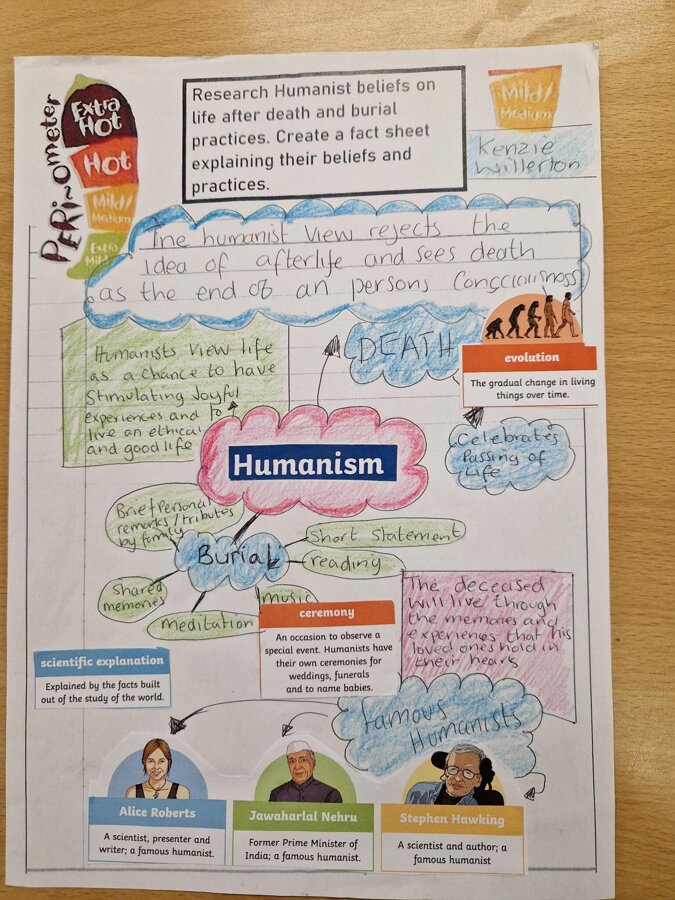 PERi~ometer
Extra
Hot
Hot
Mild/
Medium
Extra
Mild
Research Humanist beliefs on
life after death and burial
practices. Create a fact sheet
explaining their beliefs and
practices.
Mild/
Medium
Kenzie
Willerton
The humanist view rejects the
idea of afterlife and sees death
as the end of an persons Conciousness
Humanists view life
as a chance to have
Stimulating Joyful
experiences and to
live an ethical
and good life
DEATH
evolution
The gradual change in living
things over time.
Celebrates
Passing of
Life
Humanism
Brief Personal
remarks/tributes
by family
Burial
Short Statement
reading
music
Shared
memories
meditation
ceremony
An occasion to observe a
special event. Humanists have
their own ceremonies for
weddings, funerals
and to name babies.
The deceased
will live through
the memories and
experiences that his
loved ones hold in
their hears
scientific explanation
Explained by the facts built
out of the study of the world.
Famous
Humanists
Alice Roberts
A scientist, presenter and
writer; a famous humanist.
Jawaharlal Nehru
Former Prime Minister of
India; a famous humanist.
Stephen Hawking
A scientist and author; a
famous humanist